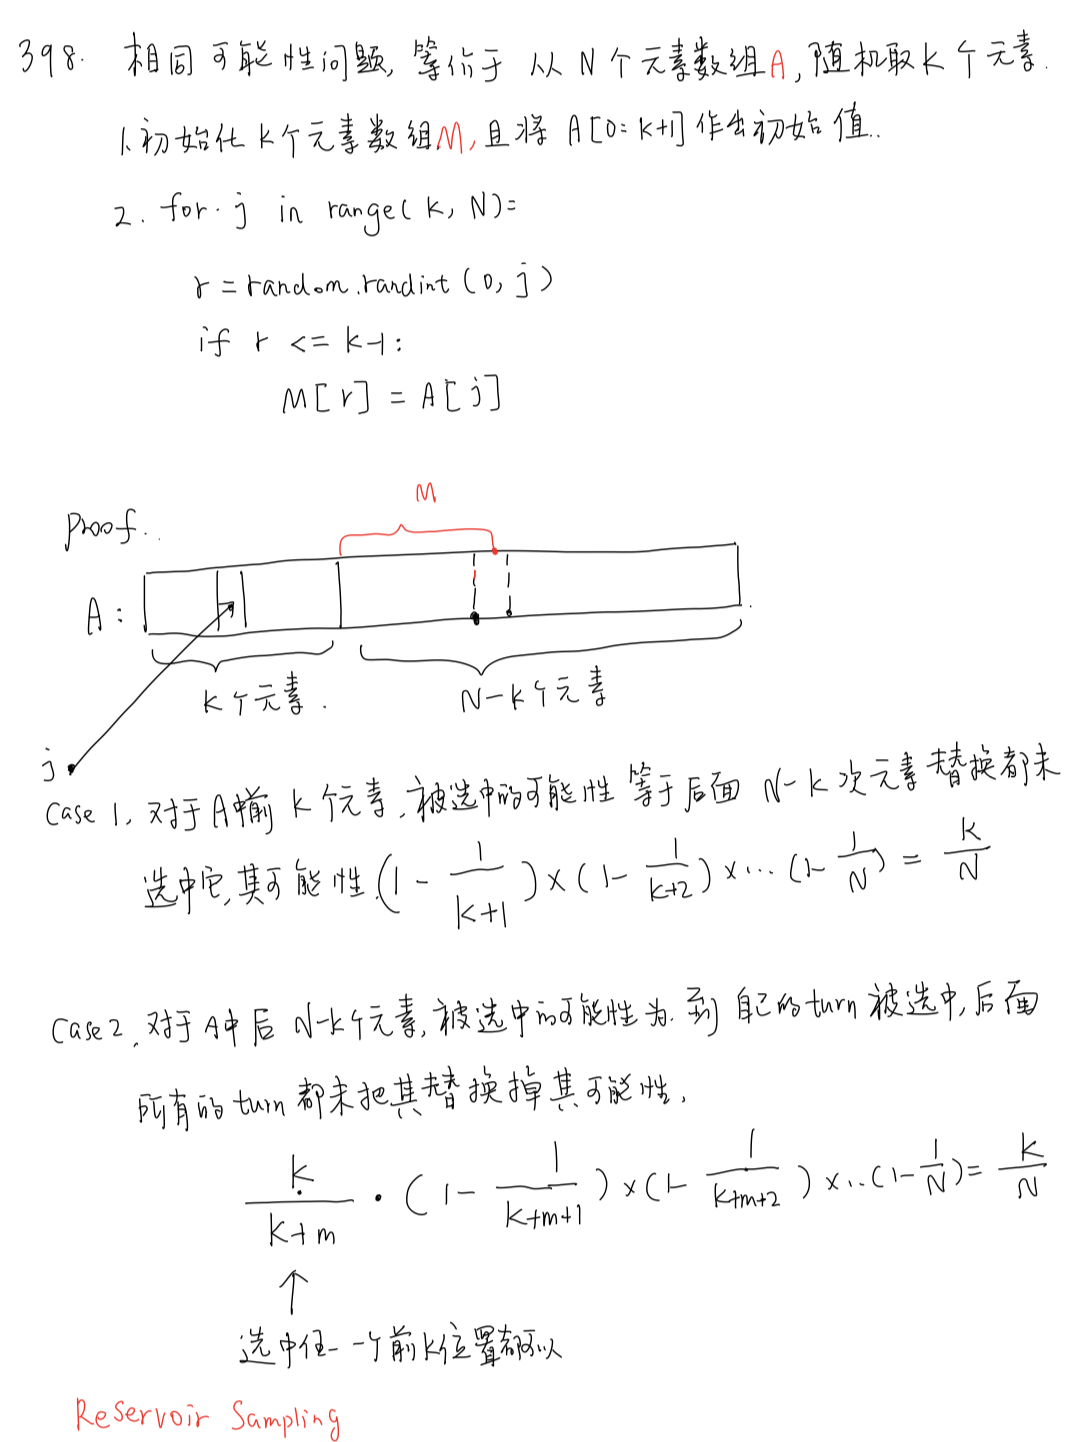 398. 相同可能性问题, 等价于 从 N 个元素数组A, 随机取 k 个元素.
1. 初始化 k 个元素数组M, 且将 A[0:k+1] 作为初始值.
2. for j in range(k, N):
r = random.randint(0, j)
if r <= k-1:
M[r] = A[j]
Proof.
M
A:
k个元素.
N-k个元素
j
Case 1, 对于A中前 k 个元素, 被选中的可能性 等于后面 N-k 次元素替换都未
选中它, 其可能性 (1 - 1/(k+1)) × (1 - 1/(k+2)) × ... (1 - 1/N) = k/N
Case 2, 对于A中后 N-k个元素, 被选中的可能性为. 到自己的turn被选中, 后面
所有的turn都未把其替换掉其可能性,
k/(k+m) · (1 - 1/(k+m+1)) × (1 - 1/(k+m+2)) × .. (1 - 1/N) = k/N
↑
选中任一个前k位置都可以
Reservoir Sampling